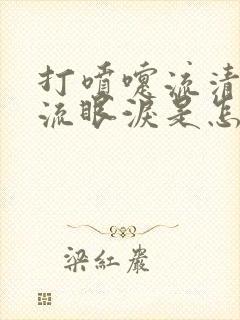 打喷嚏流清
流眼淚是怎
梁紅巖